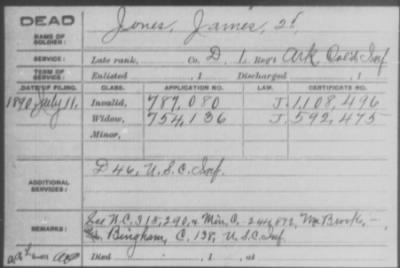 DEAD
NAME OF SOLDIER:
Jones, James, 2d
SERVICE:
Late rank, Co. D, 1, Reg't Ark. Col'd Inf.
TERM OF SERVICE:
Enlisted , 1 Discharged , 1
DATE OF FILING. CLASS. APPLICATION NO. LAW. CERTIFICATE NO.
1890 July 11, Invalid, 787,080 J. 1,108,496
Widow, 754,136 J. 592,475
Minor,
D 46, U.S.C. Inf.
ADDITIONAL SERVICES:
REMARKS:
See W.C. 313,290, & Min. C. Wm Brooks,
Bingham, C. 138, U.S.C. Inf.
Died , 1 , at